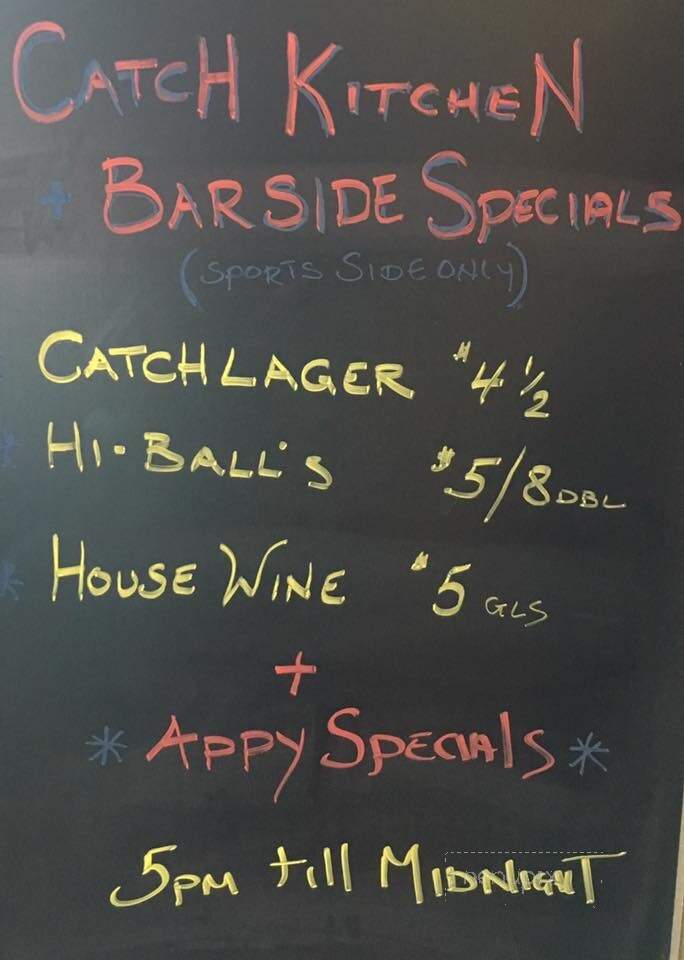 CATCH KITCHEN
+ BARSIDE SPECIALS
(SPORTS SIDE ONLY)
CATCH LAGER $4 1/2
* HI-BALL'S $5/8 DBL
* HOUSE WINE $5 GLS
+
* APPY SPECIALS *
5PM till MIDNIGHT